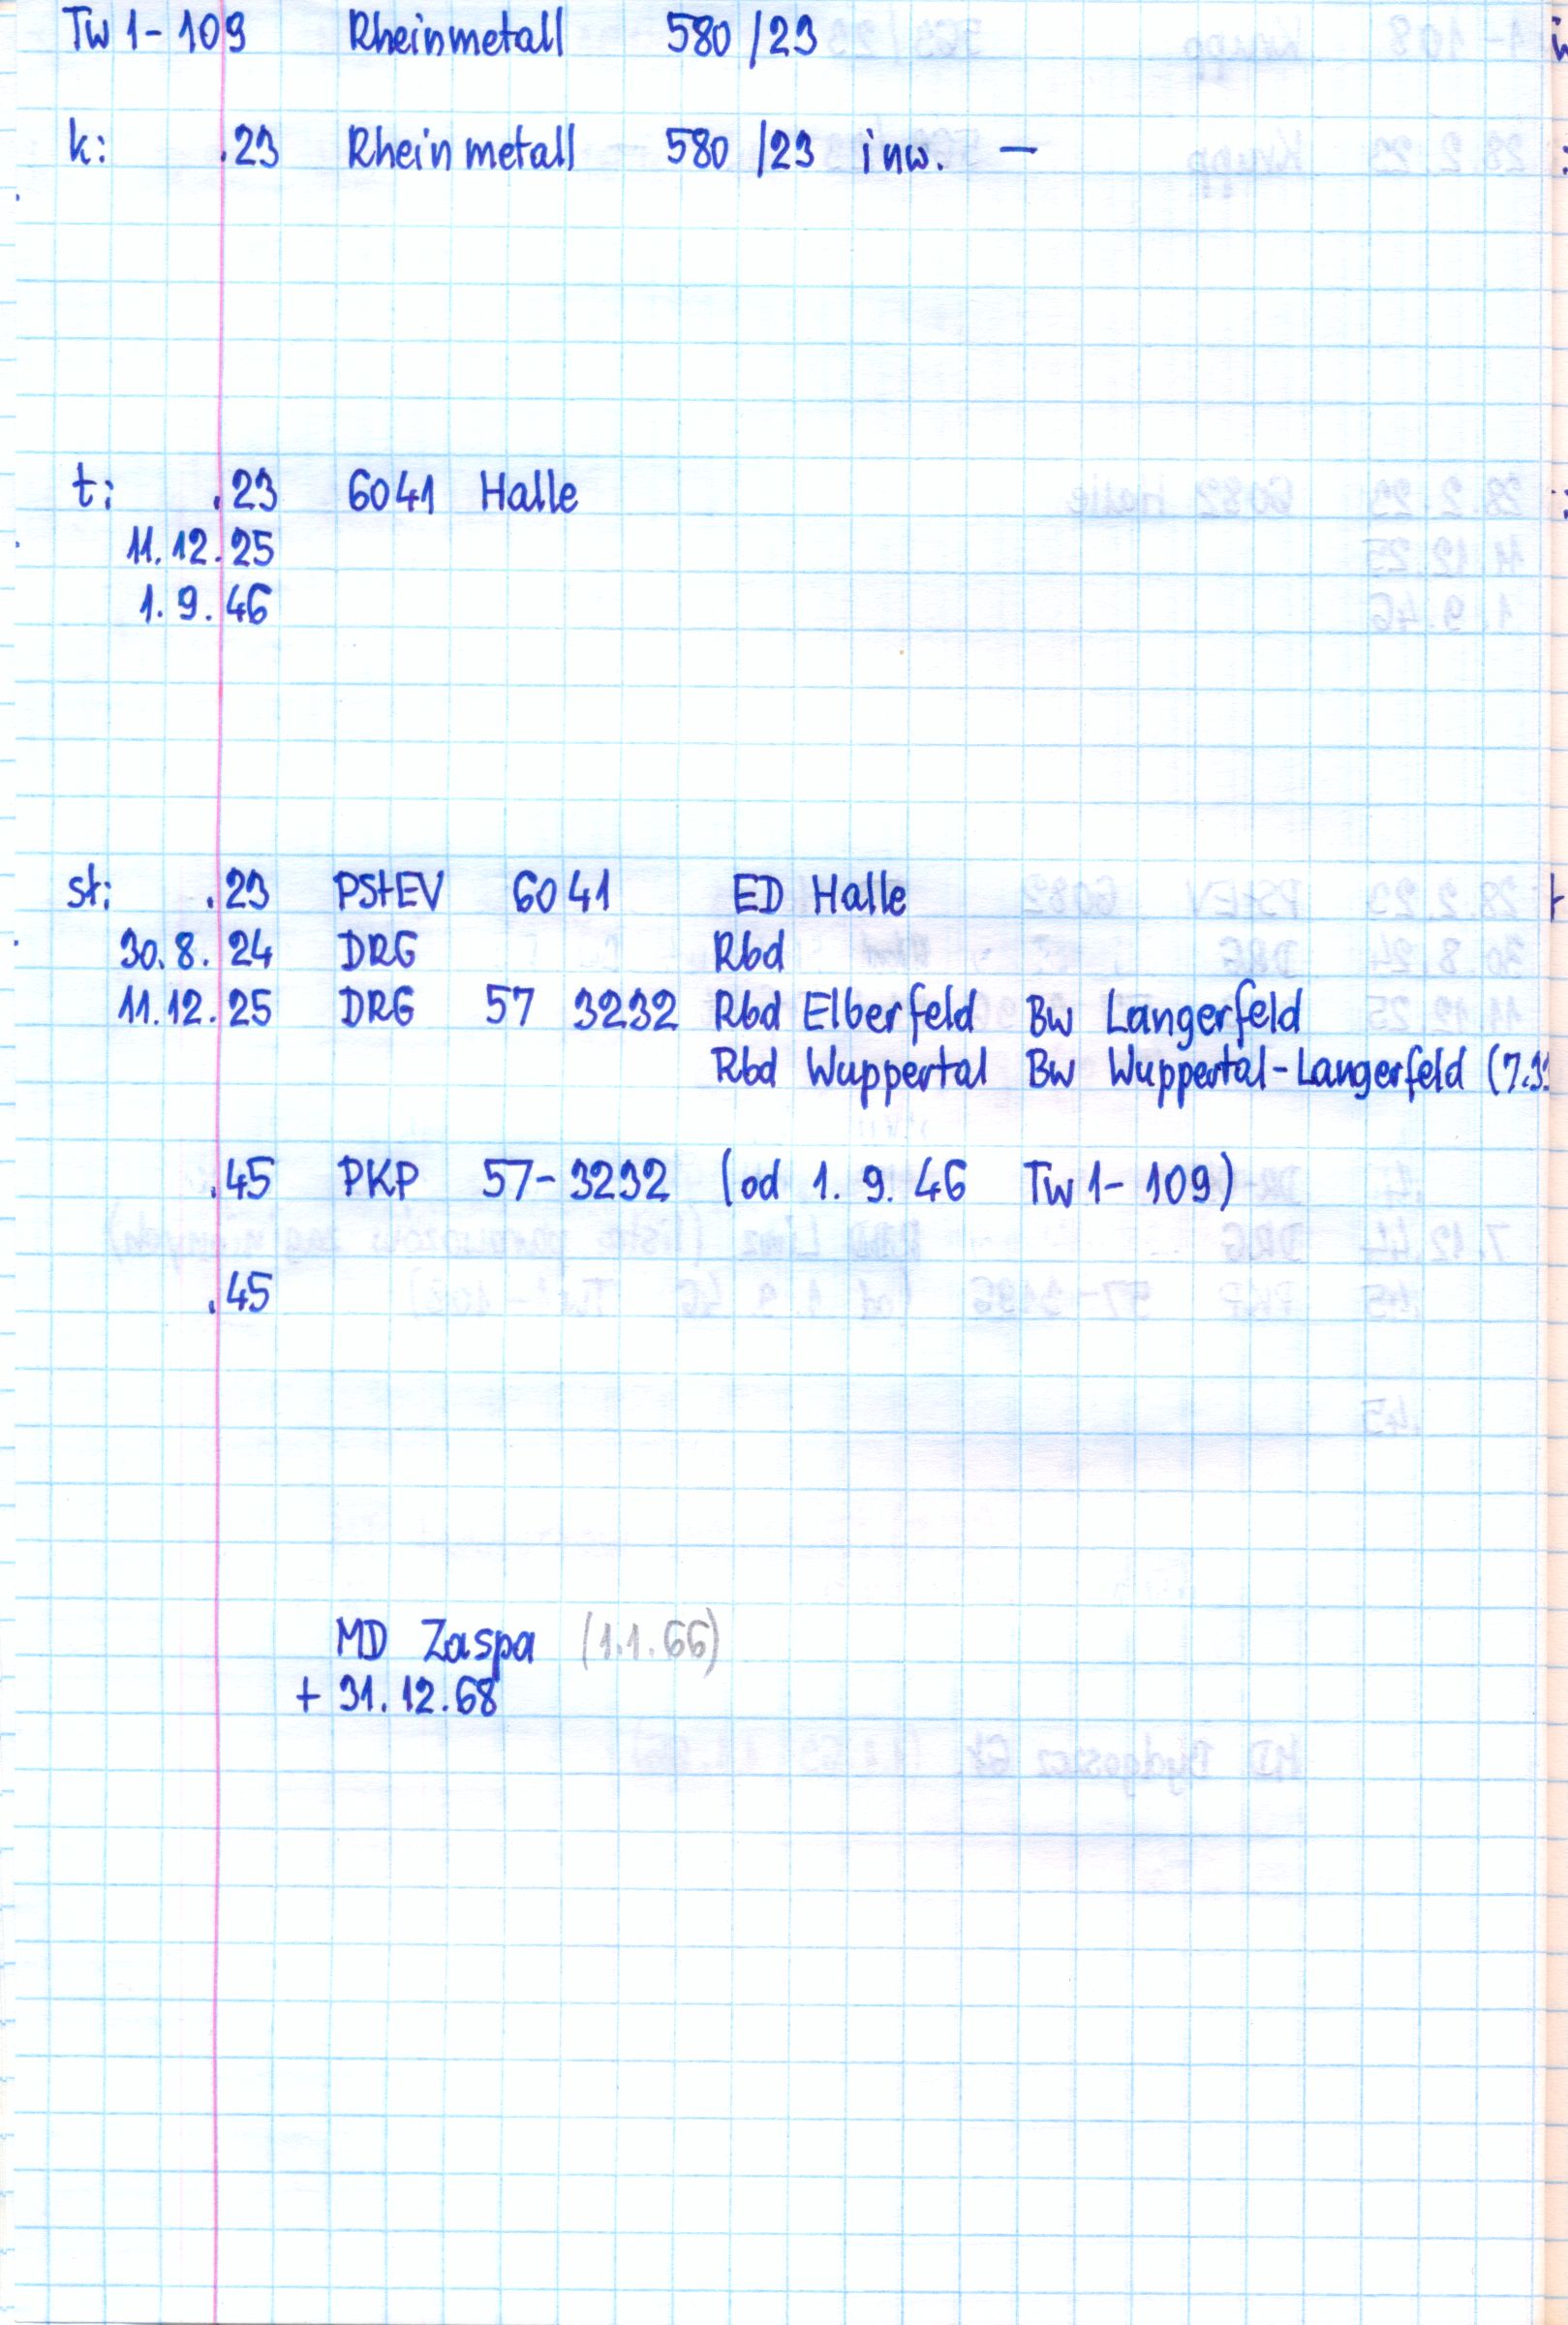 Tw 1-109 Rheinmetall 580/23
k: .23 Rheinmetall 580/23 inw. —
t: .23 6041 Halle
11.12.25
1.9.46
st: .23 PStEV 6041 ED Halle
30.8.24 DRG Rbd
11.12.25 DRG 57 3232 Rbd Elberfeld Bw Langerfeld
Rbd Wuppertal Bw Wuppertal-Langerfeld (7.3
.45 PKP 57-3232 (od 1.9.46 Tw 1-109)
.45
MD Zaspa (1.1.66)
+ 31.12.68